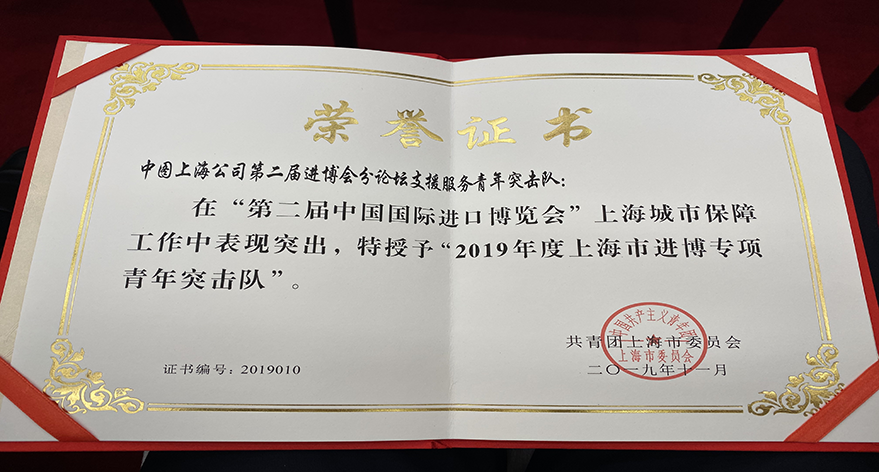 荣誉证书
中国上海公司第二届进博会分论坛支援服务青年突击队：
在“第二届中国国际进口博览会”上海城市保障
工作中表现突出，特授予“2019年度上海市进博专项
青年突击队”。
中国共产主义青年团
共青团上海市委员会
上海市委员会
证书编号：2019010
二〇一九年十一月